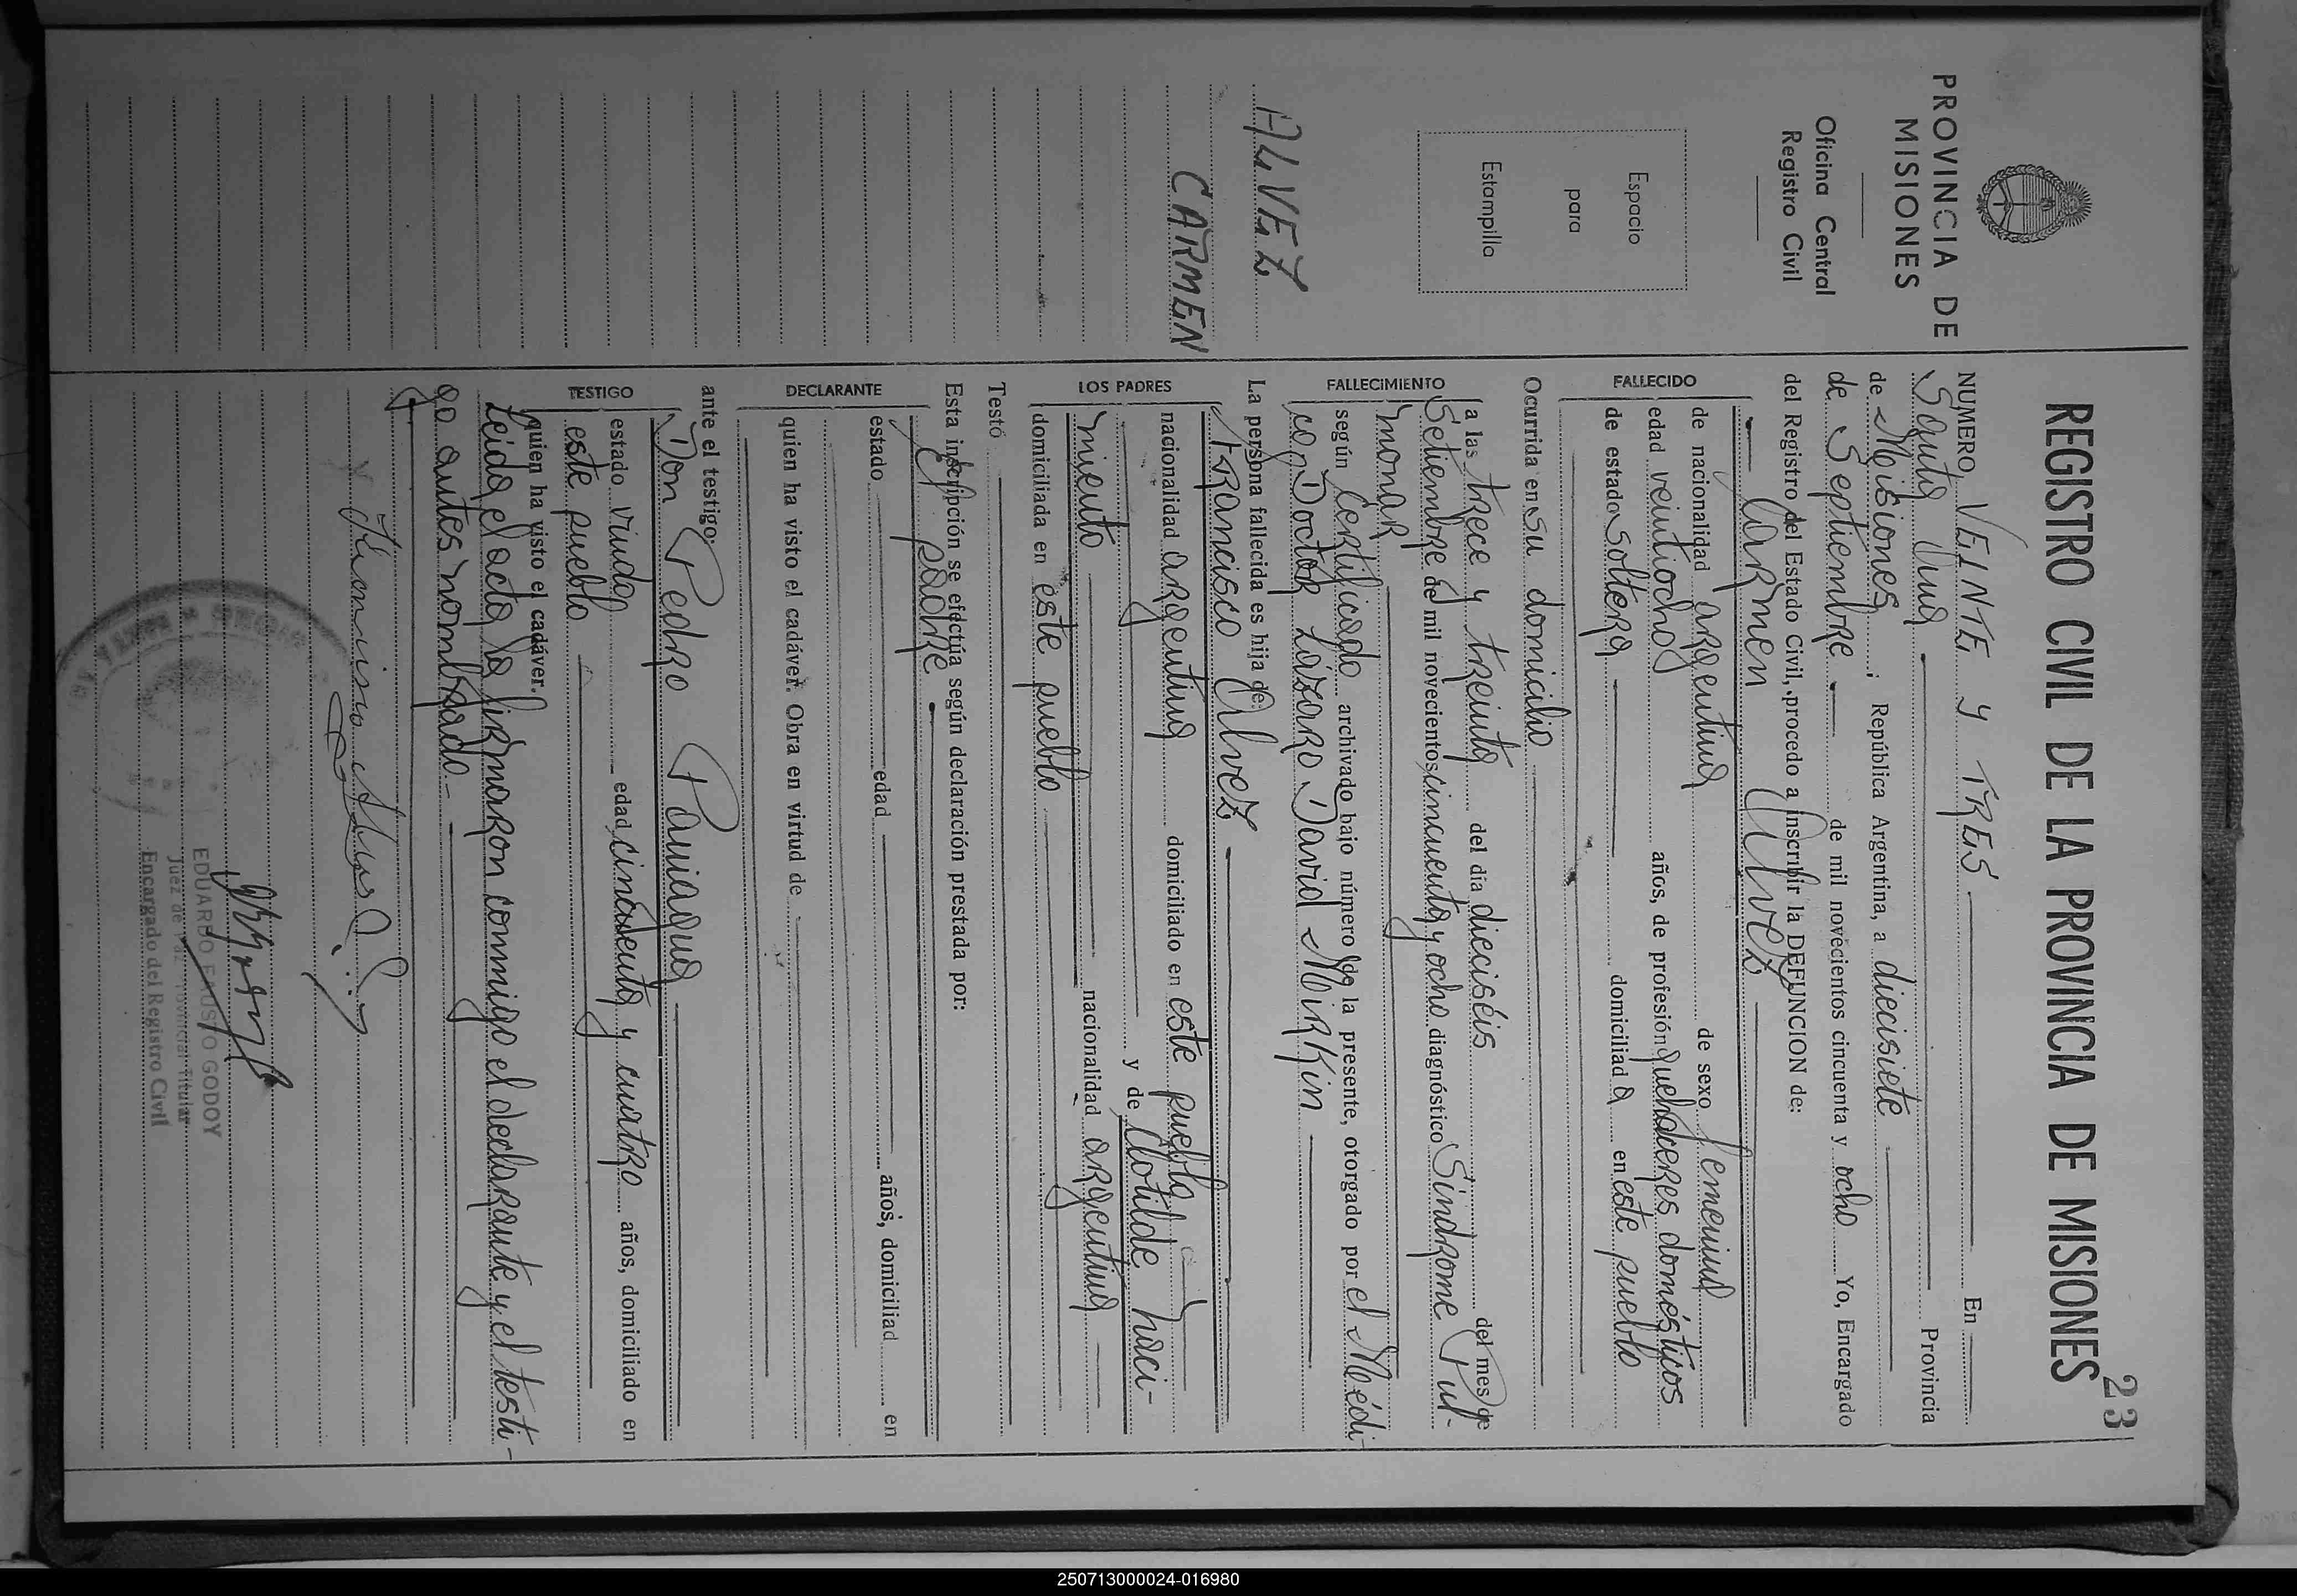 23
REGISTRO CIVIL DE LA PROVINCIA DE MISIONES
PROVINCIA DE
MISIONES
Oficina Central
Registro Civil
Espacio
para
Estampilla
ALVEZ
CARMEN
NUMERO VEINTE y TRES En
Santa Ana Provincia
de Misiones ; República Argentina, a diecisiete
de Septiembre de mil novecientos cincuenta y ocho Yo, Encargado
del Registro del Estado Civil, procedo a inscribir la DEFUNCION de:
Carmen Alvez
FALLECIDO
de nacionalidad argentina de sexo femenino
edad veintiocho años, de profesión quehaceres domésticos
de estado soltera domiciliad a en este pueblo
Ocurrida en su domicilio
FALLECIMIENTO
a las trece y treinta del día dieciséis del mes de
Setiembre de mil novecientos cincuenta y ocho diagnóstico Síndrome Pul-
monar
según Certificado archivado bajo número de la presente, otorgado por el Médi-
co Doctor Lázaro David Mirkin
La persona fallecida es hija de:
LOS PADRES
Francisco Alvez
nacionalidad argentina domiciliado en este pueblo
y de Clotilde naci-
miento nacionalidad argentina
domiciliada en este pueblo
Testó
Esta inscripción se efectúa según declaración prestada por:
DECLARANTE
El padre
estado edad años, domiciliad en
quien ha visto el cadáver. Obra en virtud de
ante el testigo:
TESTIGO
Don Pedro Paniagua
estado viudo edad cincuenta y cuatro años, domiciliado en
este pueblo
quien ha visto el cadáver.
Leída el acta la firmaron conmigo el declarante y el testi-
go antes nombrado
Francisco Alves
EDUARDO FAUSTO GODOY
Juez de Paz Provincial Titular
Encargado del Registro Civil
250713000024-016980